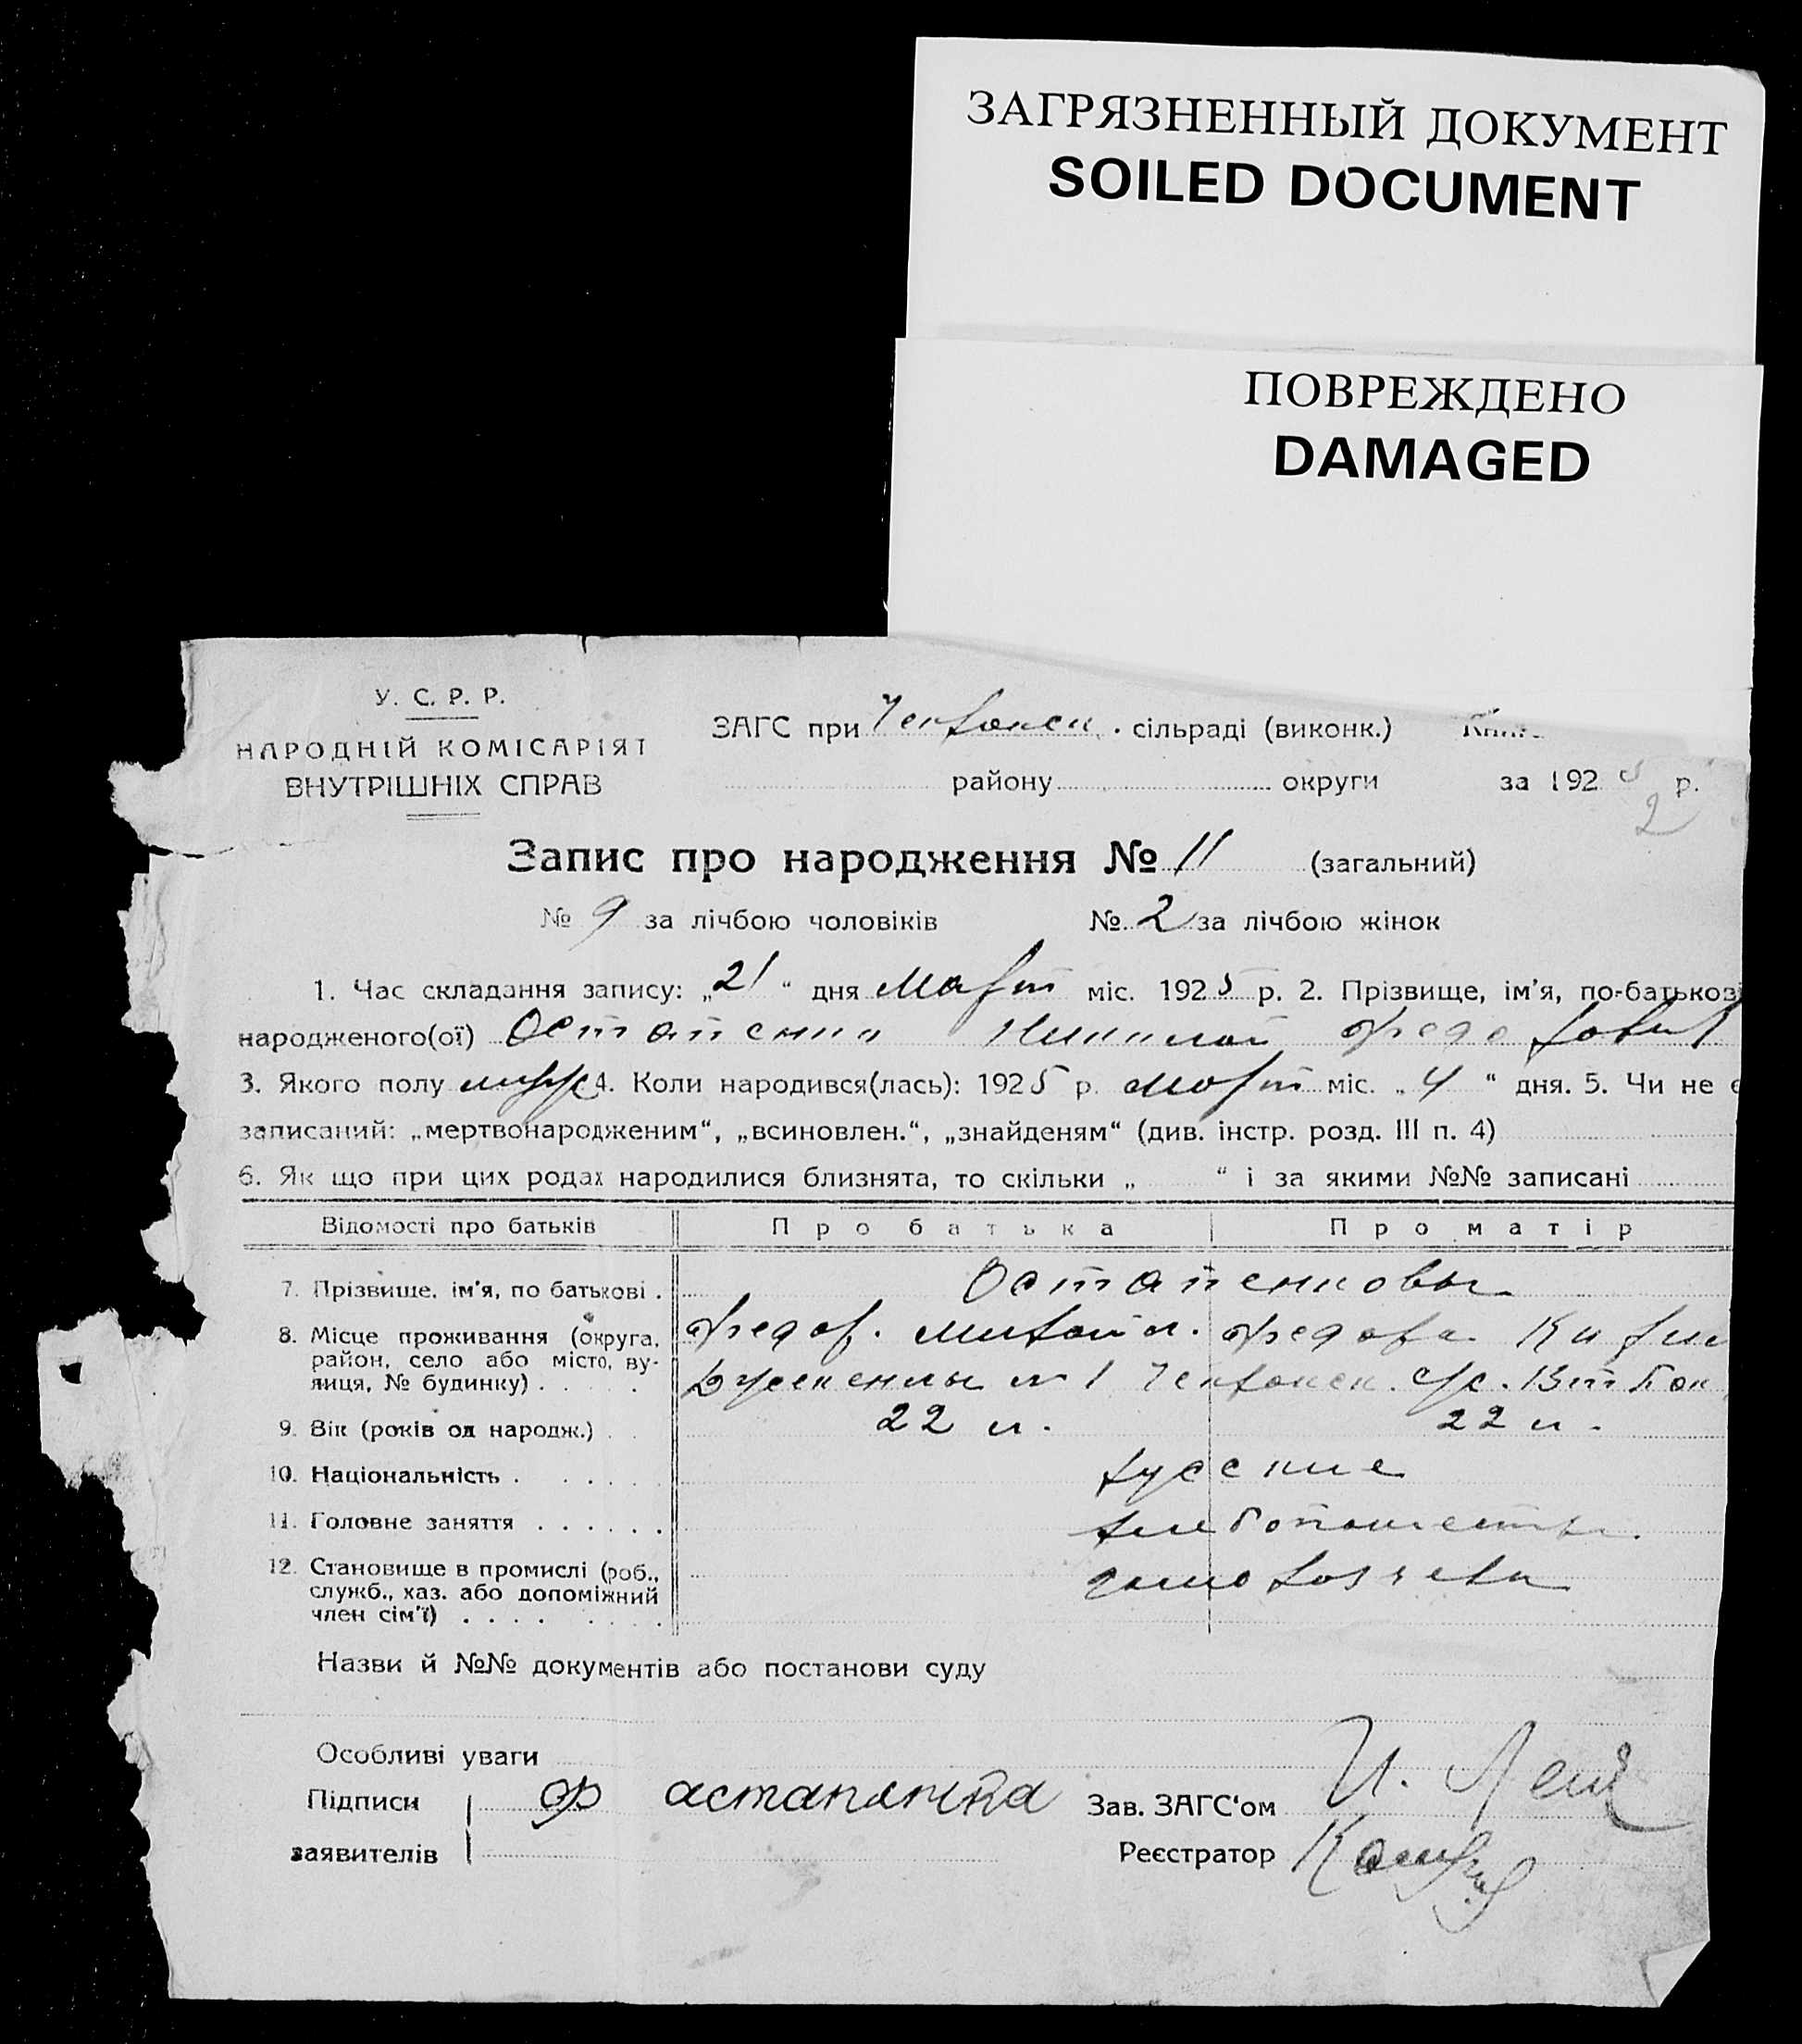 ЗАГРЯЗНЕННЫЙ ДОКУМЕНТ
SOILED DOCUMENT
ПОВРЕЖДЕНО
DAMAGED
У. С. Р. Р.
НАРОДНІЙ КОМІСАРІЯТ
ВНУТРІШНІХ СПРАВ
ЗАГС при сільраді (виконк.)
району округи за 1925 р.
2
Запис про народження № 11 (загальний)
№ 9 за лічбою чоловіків № 2 за лічбою жінок
1. Час складання запису: „21“ дня Март міс. 1925 р. 2. Прізвище, ім'я, по-батькові
народженого(ої) Остапенко Николай Федорович
3. Якого полу мужс 4. Коли народився(лась): 1925 р. Март міс. „4“ дня. 5. Чи не є
записаний: „мертвонародженим“, „всиновлен.“, „знайденям“ (див. інстр. розд. III п. 4)
6. Як що при цих родах народилися близнята, то скільки „ “ і за якими №№ записані
Відомості про батьків Про батька Про матір
7. Прізвище, ім'я, по батькові . Остапенковы
8. Місце проживання (округа, район, село або місто, ву- лиця, № будинку) . Федор. Михайл. Федора
№ 1
9. Вік (років од народж.) 22 л. 22 л.
10. Національність . русские
11. Головне заняття . хлебопашество.
12. Становище в промислі (роб., служб., хаз. або допоміжний член сім'ї) . домохозяева
Назви й №№ документів або постанови суду
Особливі уваги
Підписи Ф астапенка Зав. ЗАГС'ом И.
заявителів Реєстратор